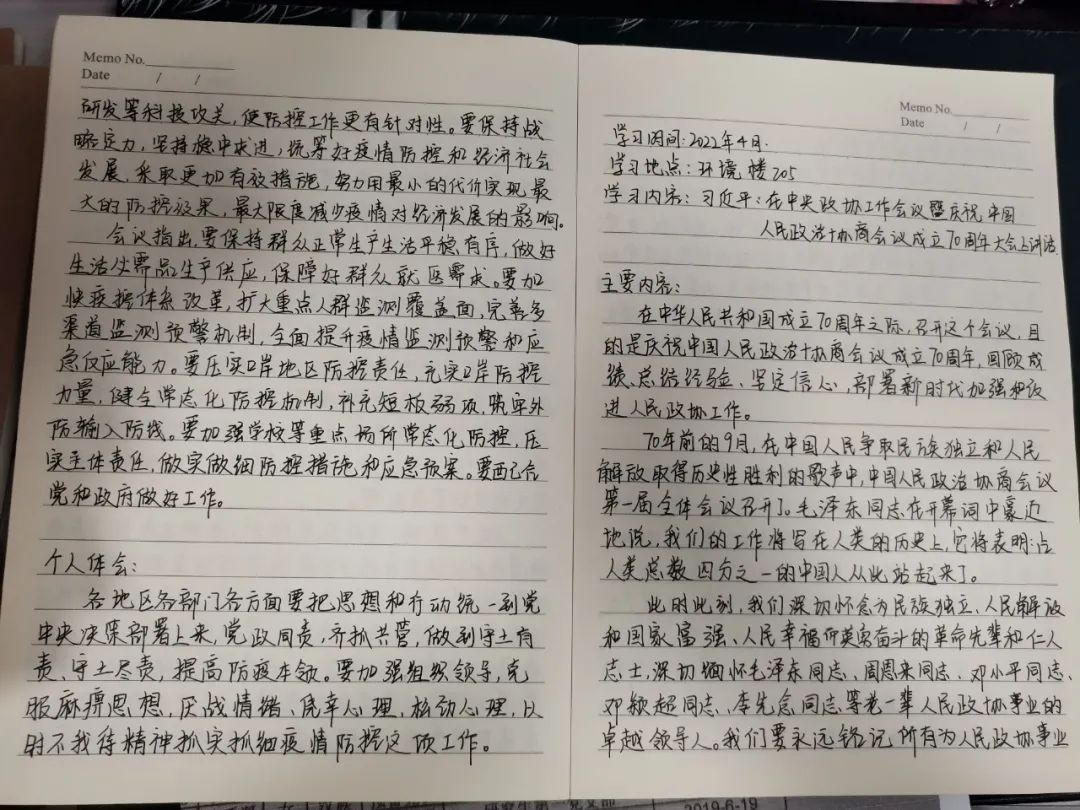 Memo No.
Date / /
研发等科技攻关,使防控工作更有针对性。要保持战
略定力,坚持稳中求进,统筹好疫情防控和经济社会
发展,采取更加有效措施,努力用最小的代价实现最
大的防控效果,最大限度减少疫情对经济发展的影响。
会议指出,要保持群众正常生产生活平稳有序,做好
生活必需品生产供应,保障好群众就医需求。要加
快疫控体系改革,扩大重点人群监测覆盖面,完善多
渠道监测预警机制,全面提升疫情监测预警和应
急反应能力。要压实口岸地区防控责任,充实口岸防控
力量,健全常态化防控机制,补充短板弱项,筑牢外
防输入防线。要加强学校等重点场所常态化防控,压
实主体责任,做实做细防控措施和应急预案。要配合
党和政府做好工作。
个人体会:
各地区各部门各方面要把思想和行动统一到党
中央决策部署上来,党政同责,齐抓共管,做到守土有
责、守土尽责,提高防疫本领。要加强组织领导,克
服麻痹思想,厌战情绪、侥幸心理,松劲心理,以
时不我待精神抓实抓细疫情防控这项工作。
Memo No.
Date / /
学习时间:2022年4月.
学习地点:环境楼205
学习内容:习近平:在中央政协工作会议暨庆祝中国
人民政治协商会议成立70周年大会上讲话.
主要内容:
在中华人民共和国成立70周年之际,召开这个会议,目
的是庆祝中国人民政治协商会议成立70周年,回顾成
绩、总结经验、坚定信心,部署新时代加强和改
进人民政协工作。
70年前的9月,在中国人民争取民族独立和人民
解放取得历史性胜利的歌声中,中国人民政治协商会议
第一届全体会议召开了。毛泽东同志在开幕词中豪迈
地说,我们的工作将写在人类的历史上,它将表明:占
人类总数四分之一的中国人从此站起来了。
此时此刻,我们深切怀念为民族独立、人民解放
和国家富强、人民幸福而英勇奋斗的革命先辈和仁人
志士,深切缅怀毛泽东同志、周恩来同志、邓小平同志、
邓颖超同志、李先念同志等老一辈人民政协事业的
卓越领导人。我们要永远铭记所有为人民政协事业
2019-6-19